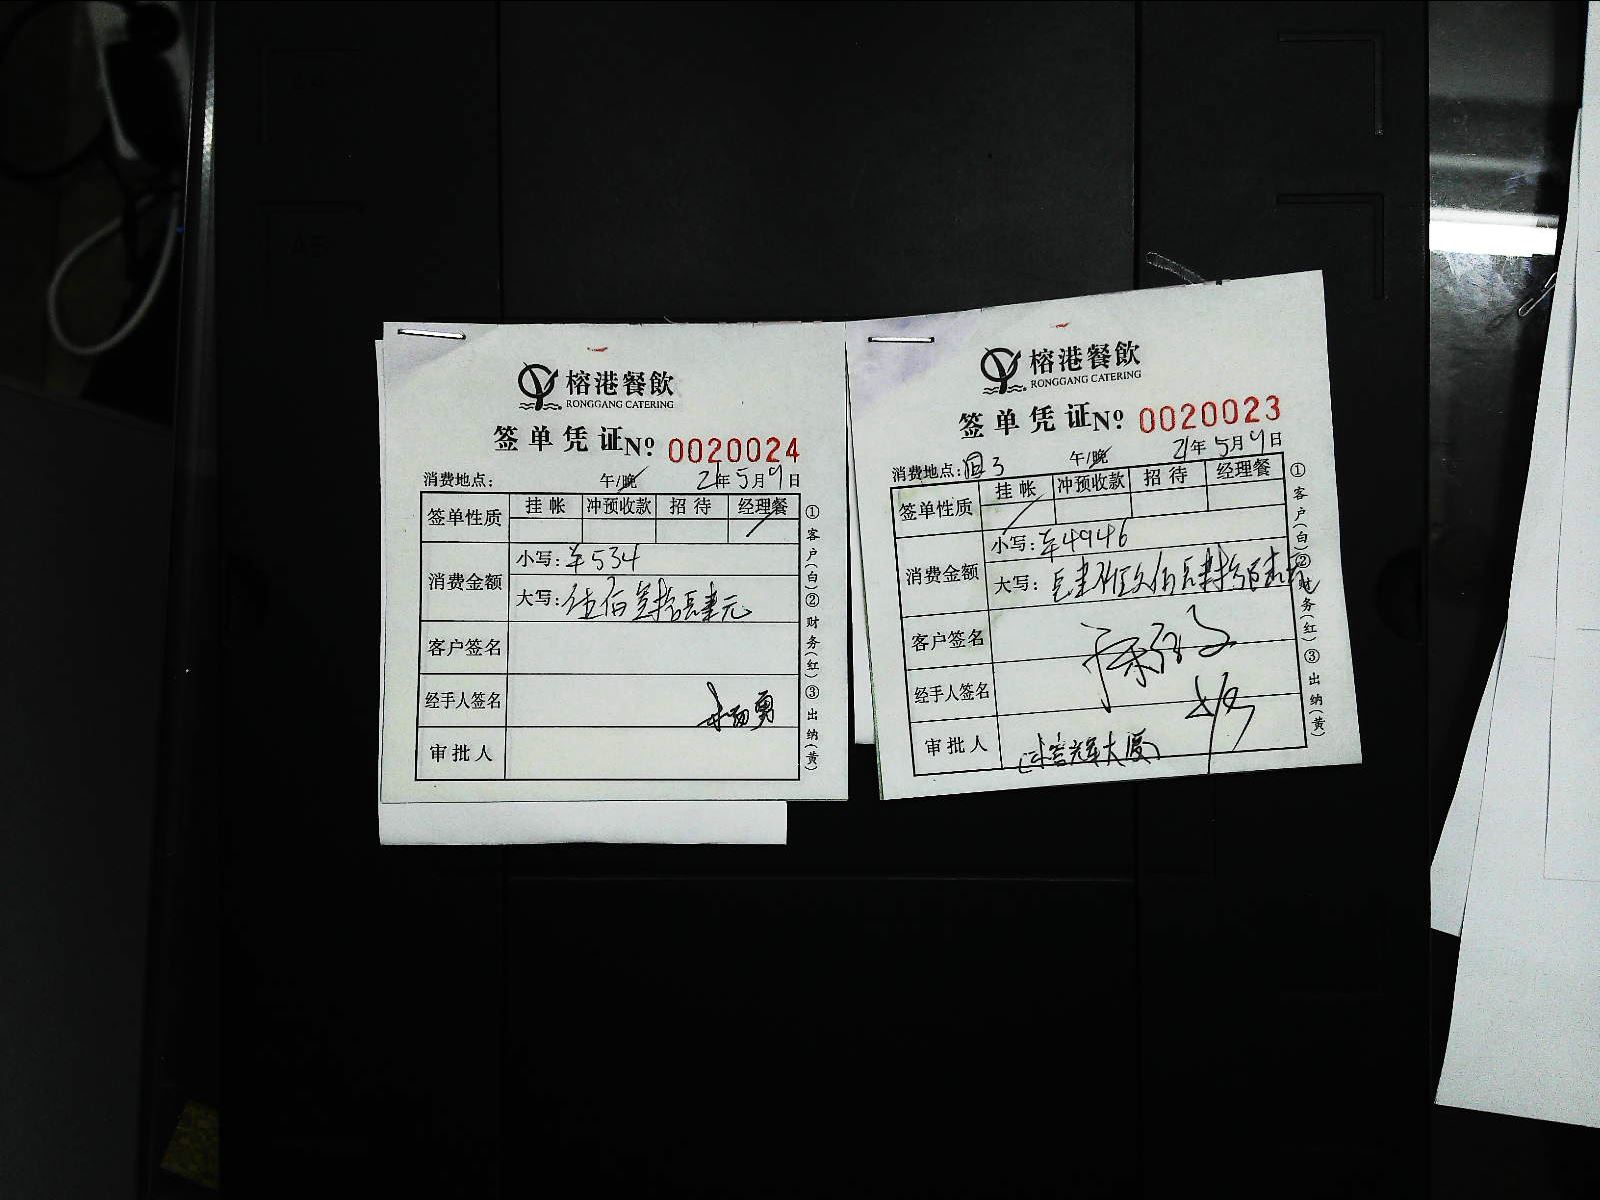 榕港餐飲
RONGGANG CATERING
签单凭证 Nº 0020024
消费地点： 午/晚 21年5月9日
签单性质 挂帐 冲预收款 招待 经理餐
消费金额 小写：¥534
大写：伍佰叁拾肆元
客户签名
经手人签名
审批人
①客户(白)②财务(红)③出纳(黄)
榕港餐飲
RONGGANG CATERING
签单凭证 Nº 0020023
消费地点： 3 午/晚 21年5月9日
签单性质 挂帐 冲预收款 招待 经理餐
消费金额 小写：¥4946
大写：肆仟玖佰肆拾陆元
客户签名
经手人签名
审批人 辉大厦
①客户(白)②财务(红)③出纳(黄)
A5